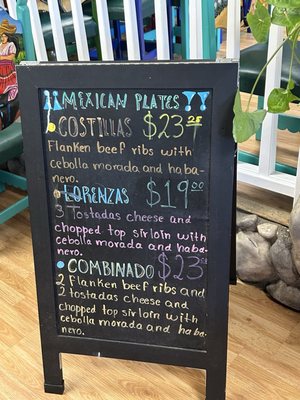 MEXICAN PLATES
COSTILLAS $23.25
Flanken beef ribs with
cebolla morada and haba-
nero.
LORENZAS $19.00
3 Tostadas cheese and
chopped top sirloin with
cebolla morada and haba-
nero.
COMBINADO $23.25
2 Flanken beef ribs and
2 tostadas cheese and
chopped top sirloin with
cebolla morada and haba-
nero.